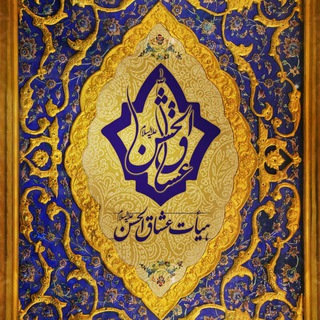 عشاق الحسن
علیه‌السلام
هیأت عشاق الحسن علیه‌السلام